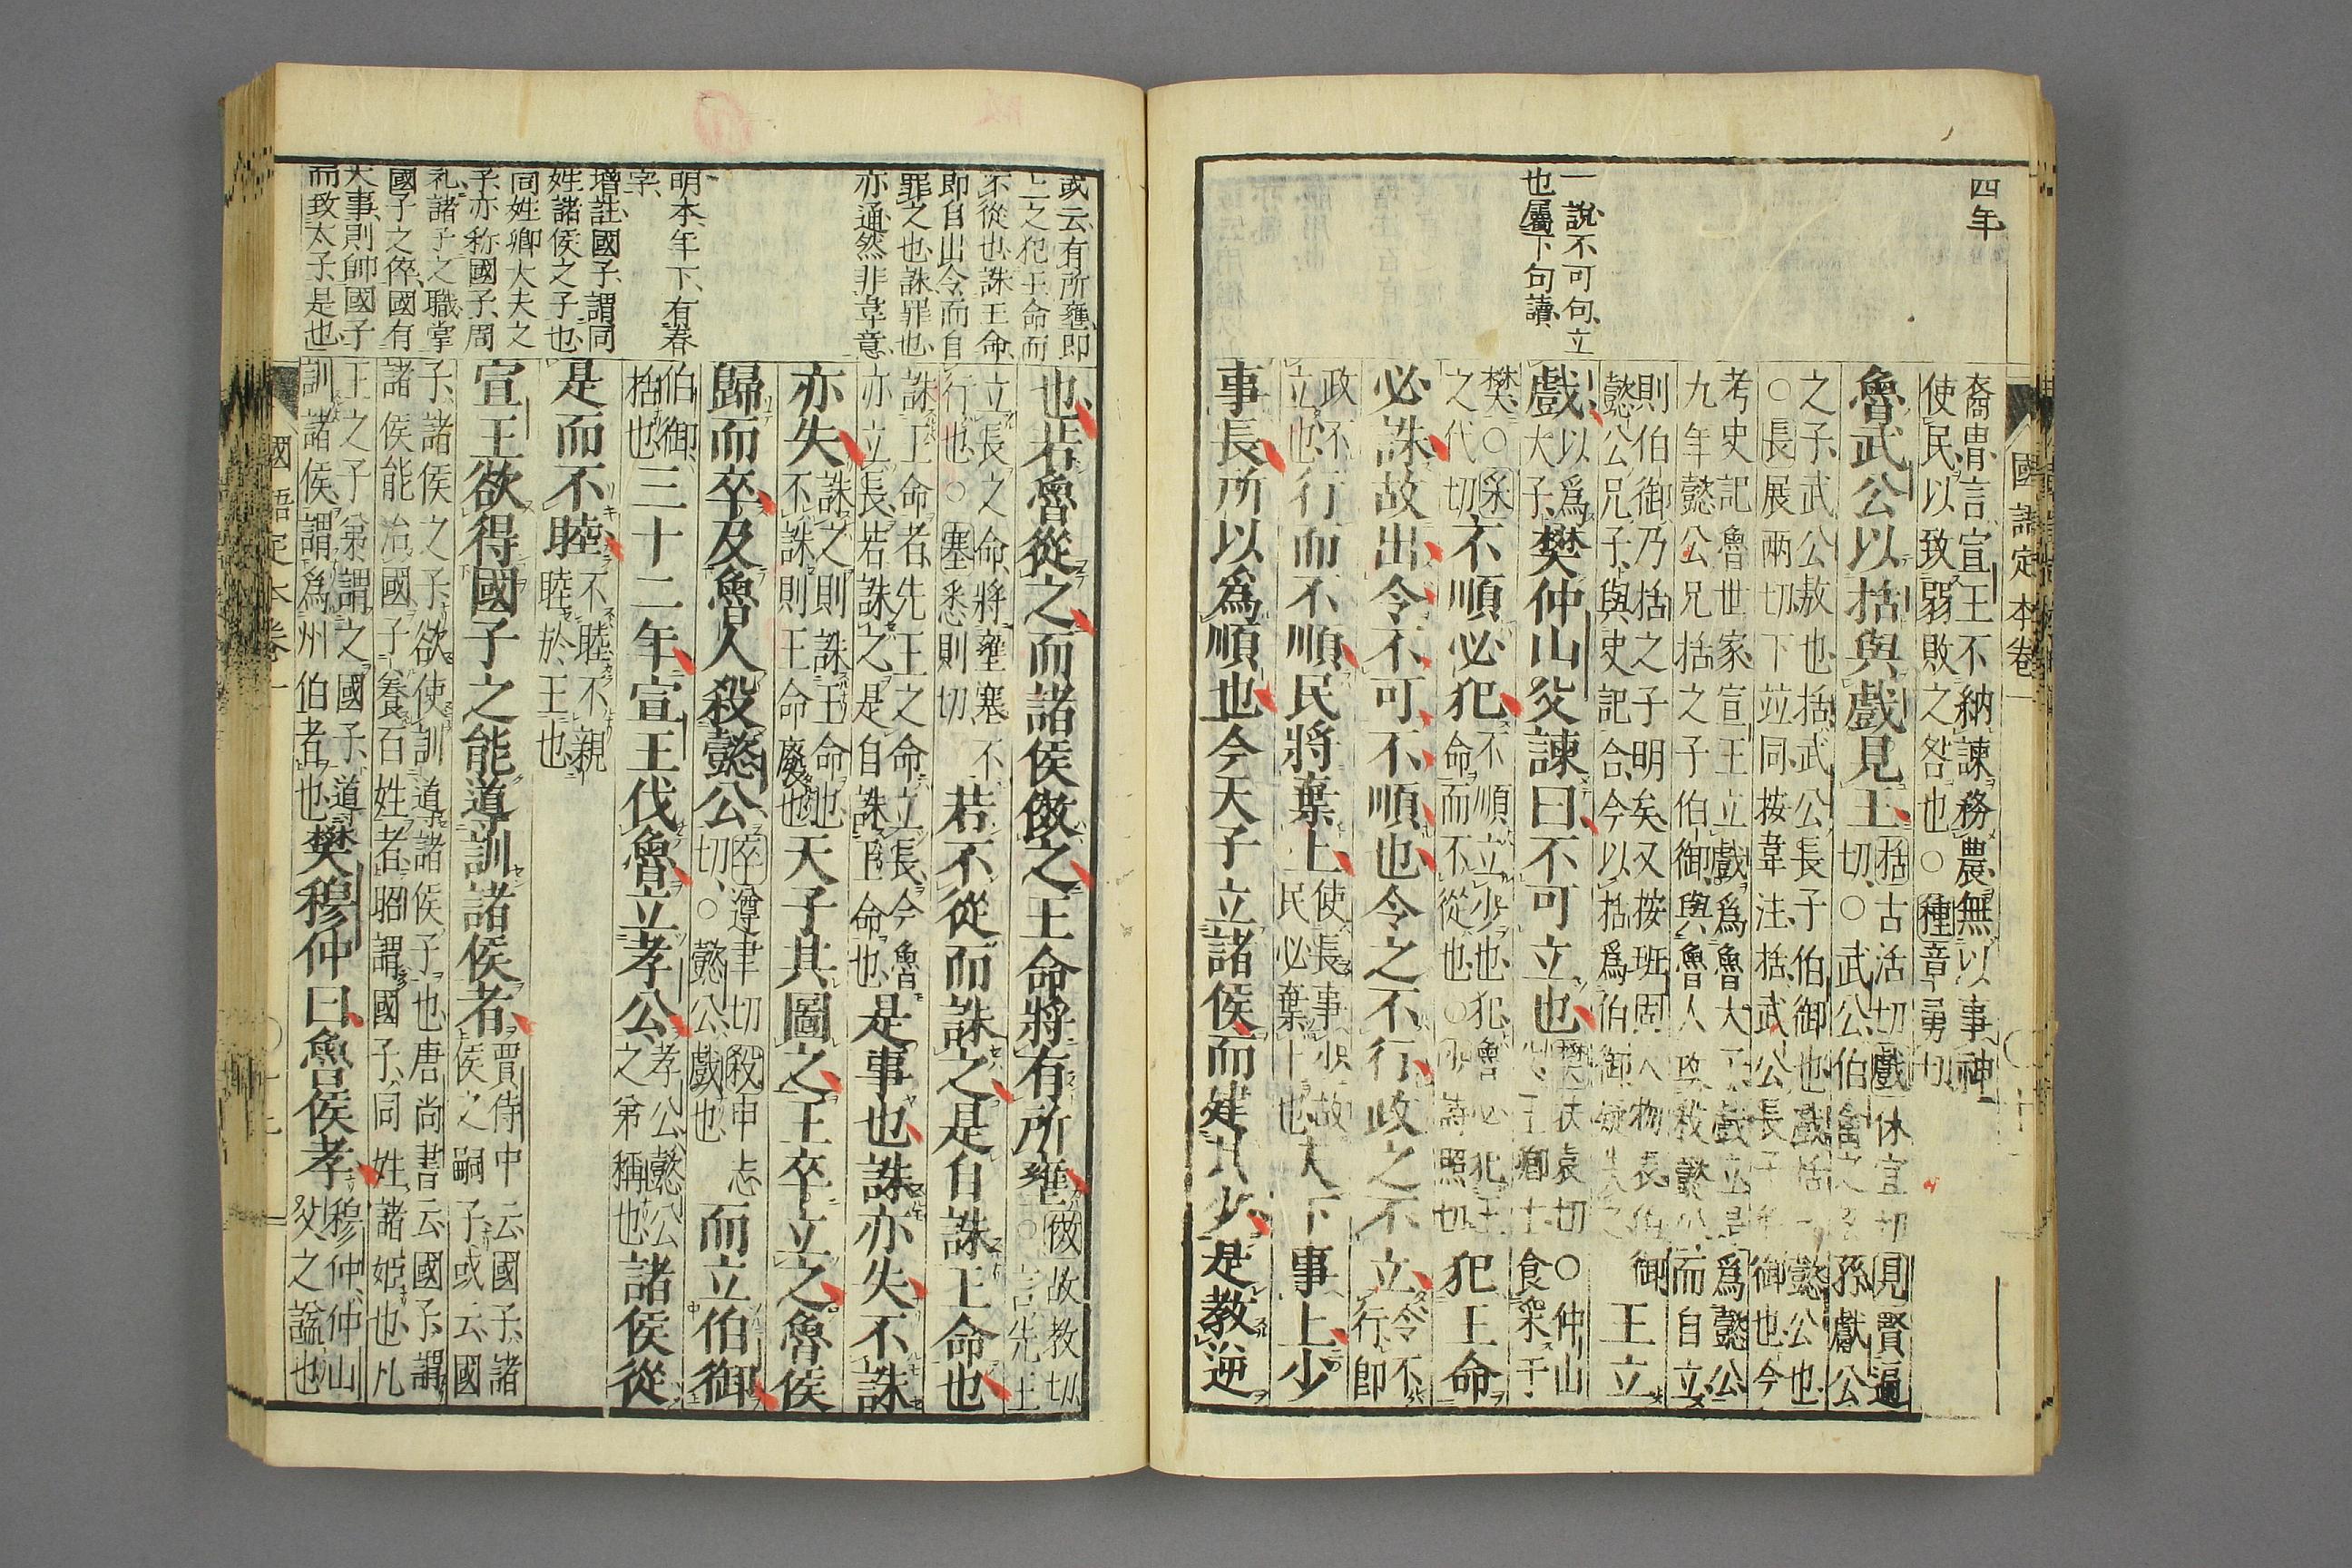 四年
一說不可句立
也屬下句讀
國語定本卷一
裔胄言宣王不納諫務農無以事神
使民以致弱敗之咎也○種章勇切
魯武公以括與戲見王
括古活切戲休宜切見賢遍
切○武公伯禽之玄孫獻公
之子武公敖也括武公長子伯御也戲括弟懿公也
○長展兩切下竝同按韋注括武公長子伯御也今
考史記魯世家宣王立戲爲魯大子戲立是爲懿公
九年懿公兄括之子伯御與魯人攻弒懿公而自立
則伯御乃括之子明矣又按班固人物表伯御
懿公兄子與史記合今以括爲伯御疑失之
王立
戲
以爲
大子
樊仲山父諫曰不可立也
樊扶袁切○仲山
父王卿士食采于
樊○采
之代切
不順必犯
不順立少也犯魯必犯王
命而不從也○少詩照切
犯王命
必誅故出令不可不順也令之不行政之不立
令不
行即
政不
立也
行而不順民將棄上
使長事少故
民必棄上也
夫下事上少
事長所以爲順也今天子立諸侯而建其少是教逆
或云有所壅即
上之犯王命而
不從也誅王命
即自出令而自
罪之也誅罪也
亦通然非韋意
明本年下有春
字
增註國子謂同
姓諸侯之子也
同姓卿大夫之
子亦称國子周
礼諸子之職掌
國子之倅國有
大事則帥國子
而致太子是也
也若魯從之而諸侯傚之王命將有所壅
傚故教切
○言先王
立長之命將壅塞不
行也○塞悉則切
若不從而誅之是自誅王命也
誅王命者先王之命立長今魯
亦立長若誅之是自誅王命也
是事也誅亦失不誅
亦失
誅之則誅王命也
不誅則王命廢也
天子其圖之王卒立之魯侯
歸而卒及魯人殺懿公
卒遵聿切殺申志
切○懿公戲也
而立伯御
伯御
括也
三十二年宣王伐魯立孝公
孝公懿公
之弟稱也
諸侯從
是而不睦
不睦不親
睦於王也
宣王欲得國子之能導訓諸侯者
賈侍中云國子諸
侯之嗣子或云國
子諸侯之子欲使訓導諸侯子也唐尚書云國子謂
諸侯能治國子養百姓者昭謂國子同姓諸姬也凡
王之子弟謂之國子導
訓諸侯謂爲州伯者也
樊穆仲曰魯侯孝
穆仲仲山
父之謚也
國語定本卷一